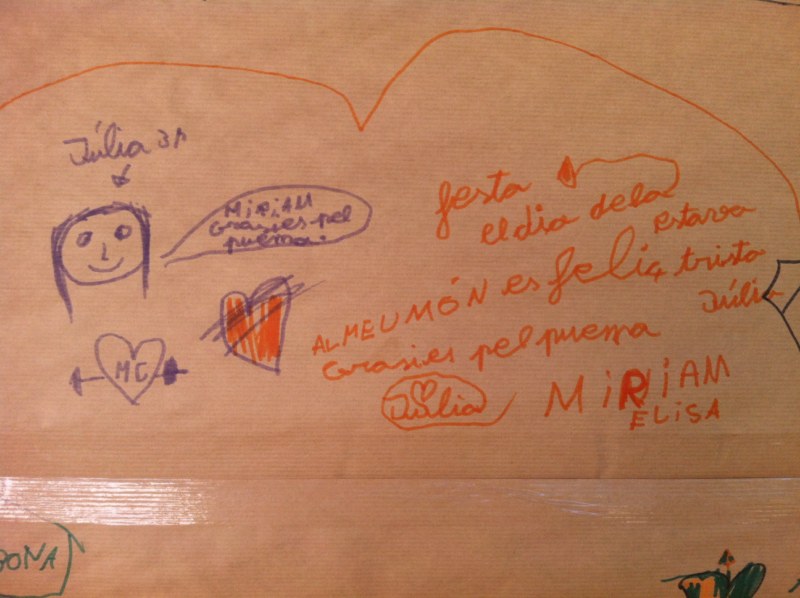 Júlia 3A
MiRiAM
Grasies pel
puema.
MC
festa
el dia dela
estava
AL MEU MÓN es feliç trista
Júlia
Grasies pel puema
Júlia
MiRiAM
ELiSA
BONA